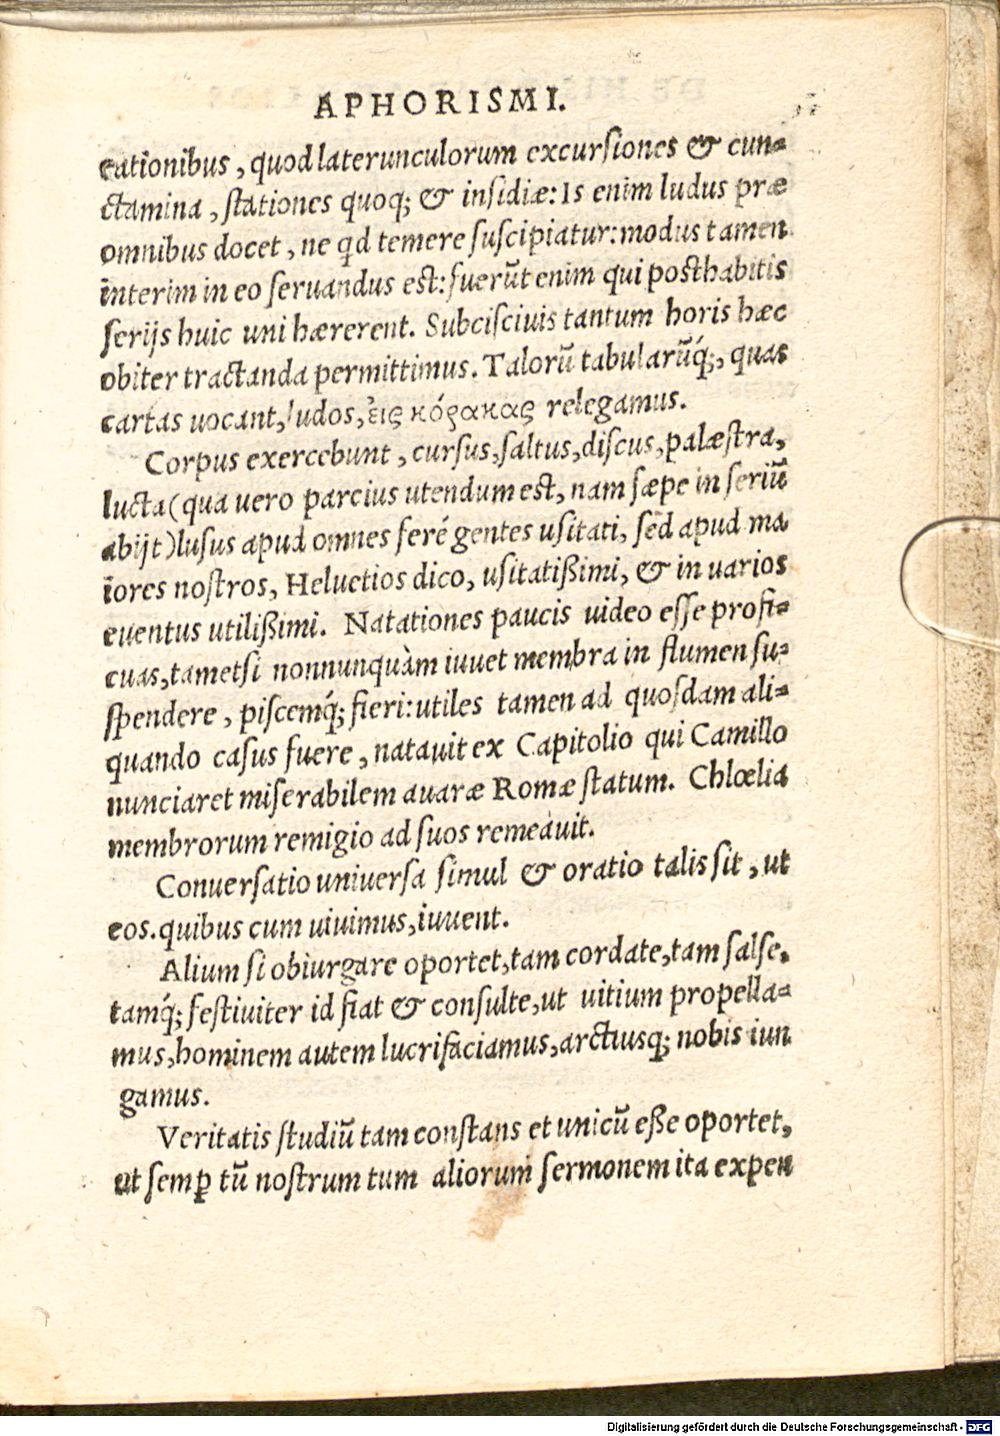 APHORISMI.
cationibus, quod laterunculorum excursiones & cun-
ctamina, stationes quoq; & insidiæ: Is enim ludus præ
omnibus docet, ne qd temere suscipiatur: modus tamen
interim in eo seruandus est: fuerūt enim qui posthabitis
serijs huic uni hærerent. Subcisciuis tantum horis hæc
obiter tractanda permittimus. Talorū tabularūq́;, quas
cartas uocant, ludos, εἰς κόρακας relegamus.
Corpus exercebunt, cursus, saltus, discus, palæstra,
lucta (qua uero parcius utendum est, nam sæpe in seriū
abijt) lusus apud omnes feré gentes usitati, sed apud ma
iores nostros, Heluetios dico, usitatißimi, & in uarios
euentus utilißimi. Natationes paucis uideo esse profi-
cuas, tametsi nonnunquàm iuuet membra in flumen su-
spendere, piscemq́; fieri: utiles tamen ad quosdam ali-
quando casus fuere, natauit ex Capitolio qui Camillo
nunciaret miserabilem auaræ Romæ statum. Chlœlia
membrorum remigio ad suos remeauit.
Conuersatio uniuersa simul & oratio talis sit, ut
eos. quibus cum uiuimus, iuuent.
Alium si obiurgare oportet, tam cordate, tam salse,
tamq́; festiuiter id fiat & consulte, ut uitium propella-
mus, hominem autem lucrifaciamus, arctiusq; nobis iun
gamus.
Veritatis studiū tam constans et unicū eße oportet,
ut semꝑ tū nostrum tum aliorum sermonem ita expen
Digitalisierung gefördert durch die Deutsche Forschungsgemeinschaft - DFG